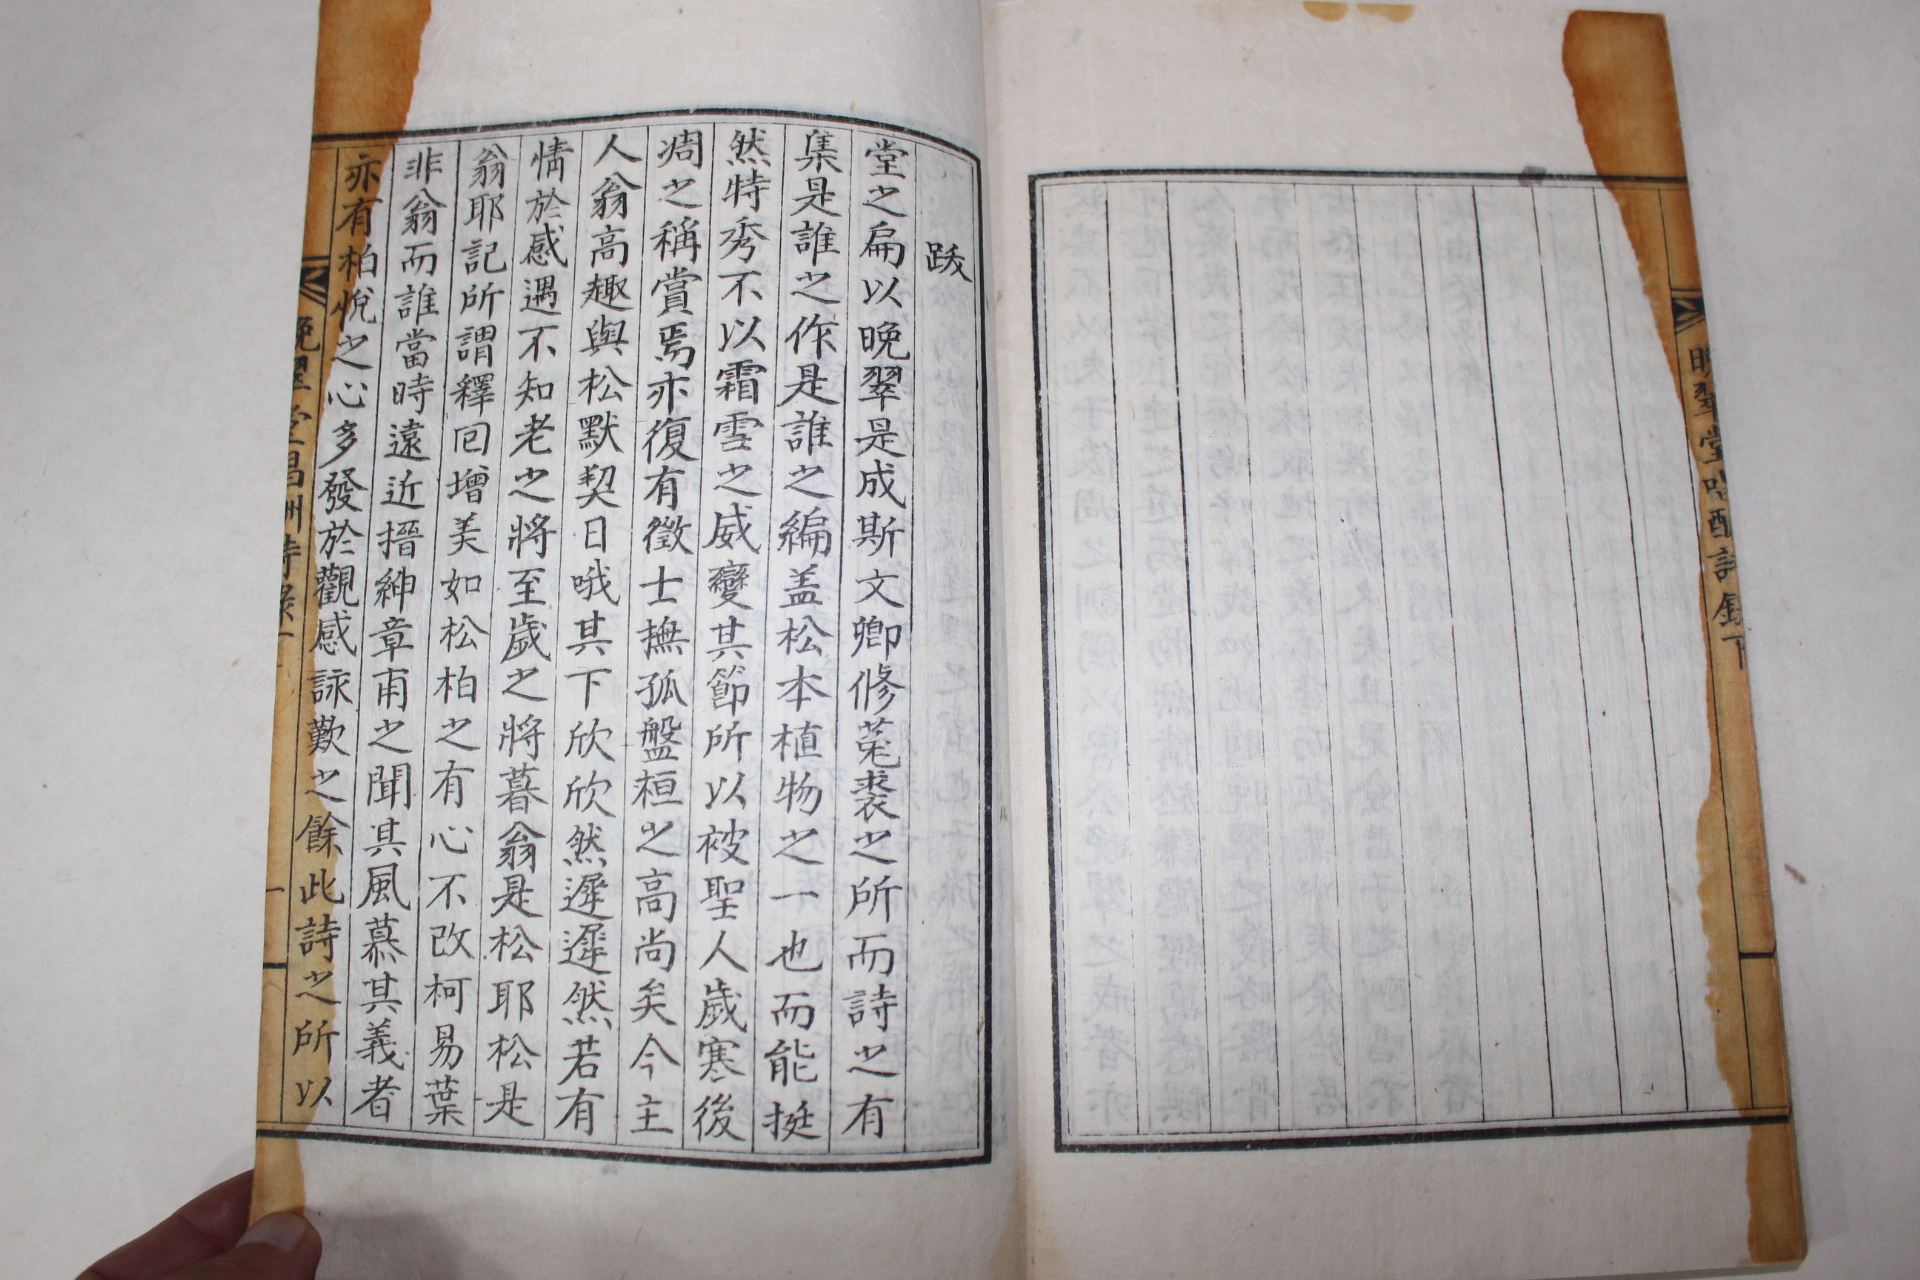 晩翠堂唱酬詩錄下
跋
堂之扁以晩翠是成斯文卿修菟裘之所而詩之有
集是誰之作是誰之編盖松本植物之一也而能挺
然特秀不以霜雪之威變其節所以被聖人歲寒後
凋之稱賞焉亦復有徵士撫孤盤桓之高尚矣今主
人翁高趣與松默契日哦其下欣欣然遲遲然若有
情於感遇不知老之將至歲之將暮翁是松耶松是
翁耶記所謂釋回增美如松柏之有心不改柯易葉
非翁而誰當時遠近搢紳章甫之聞其風慕其義者
亦有柏悅之心多發於觀感詠歎之餘此詩之所以
晩翠堂唱酬詩錄下